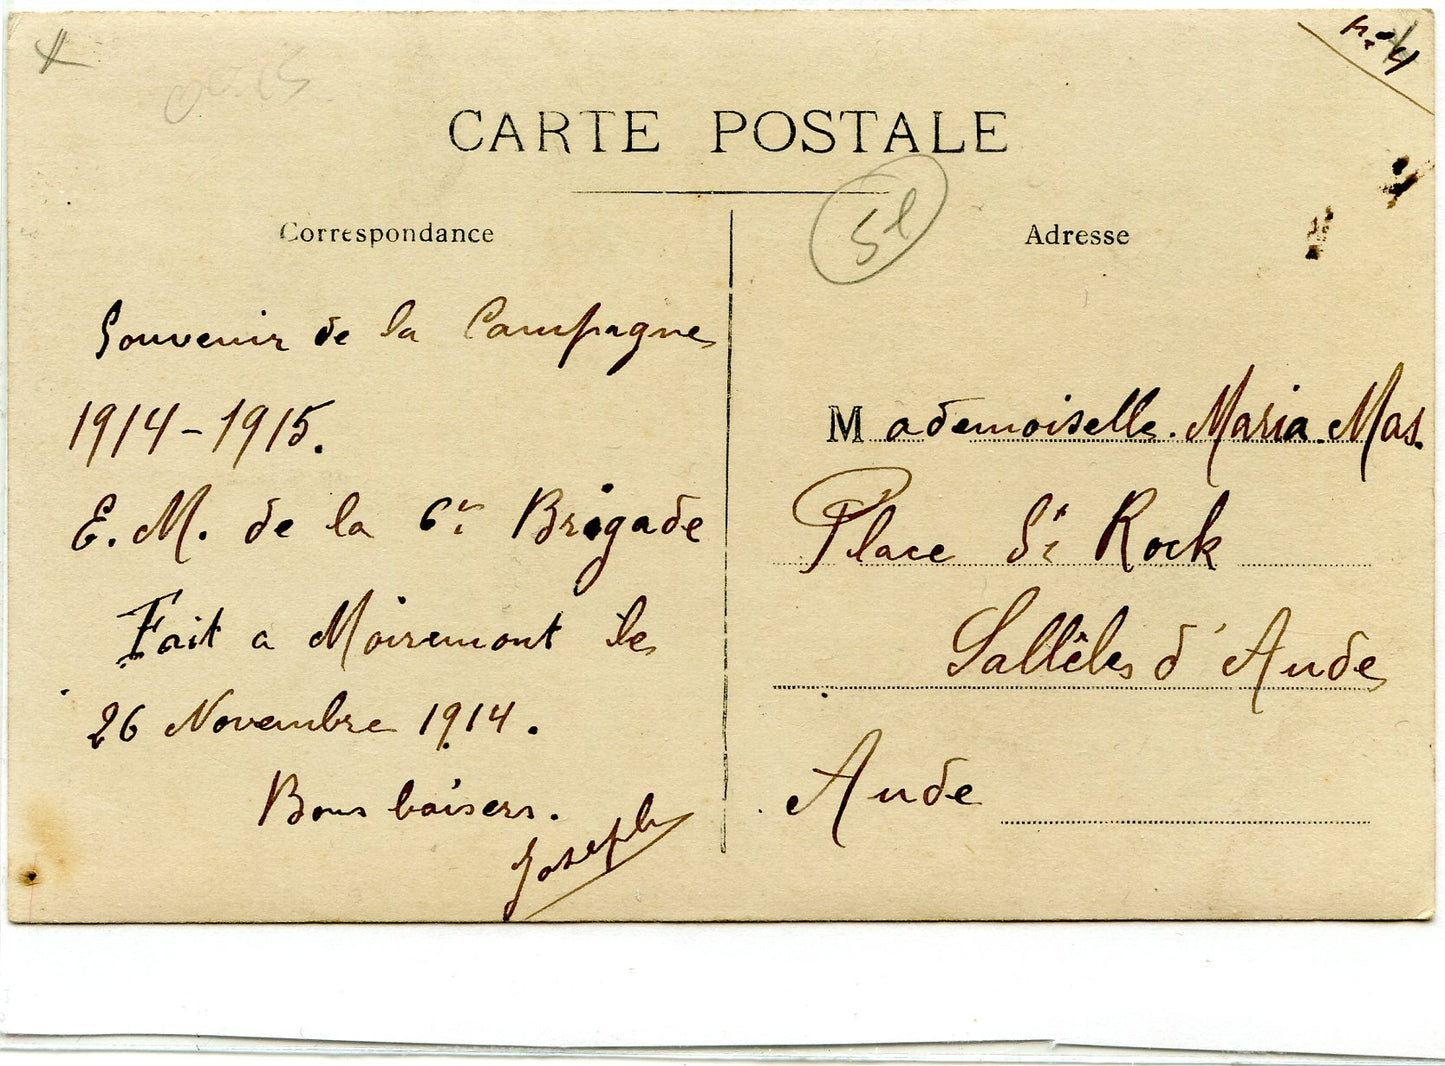 N° 4
CARTE POSTALE
Correspondance
Adresse
Souvenir de la Campagne
1914-1915.
E. M. de la 6e Brigade
Fait a Moiremont le
26 Novembre 1914.
Bons baisers.
Joseph
Mademoiselle. Maria. Mas.
Place St Rock
Sallèles d'Aude
Aude